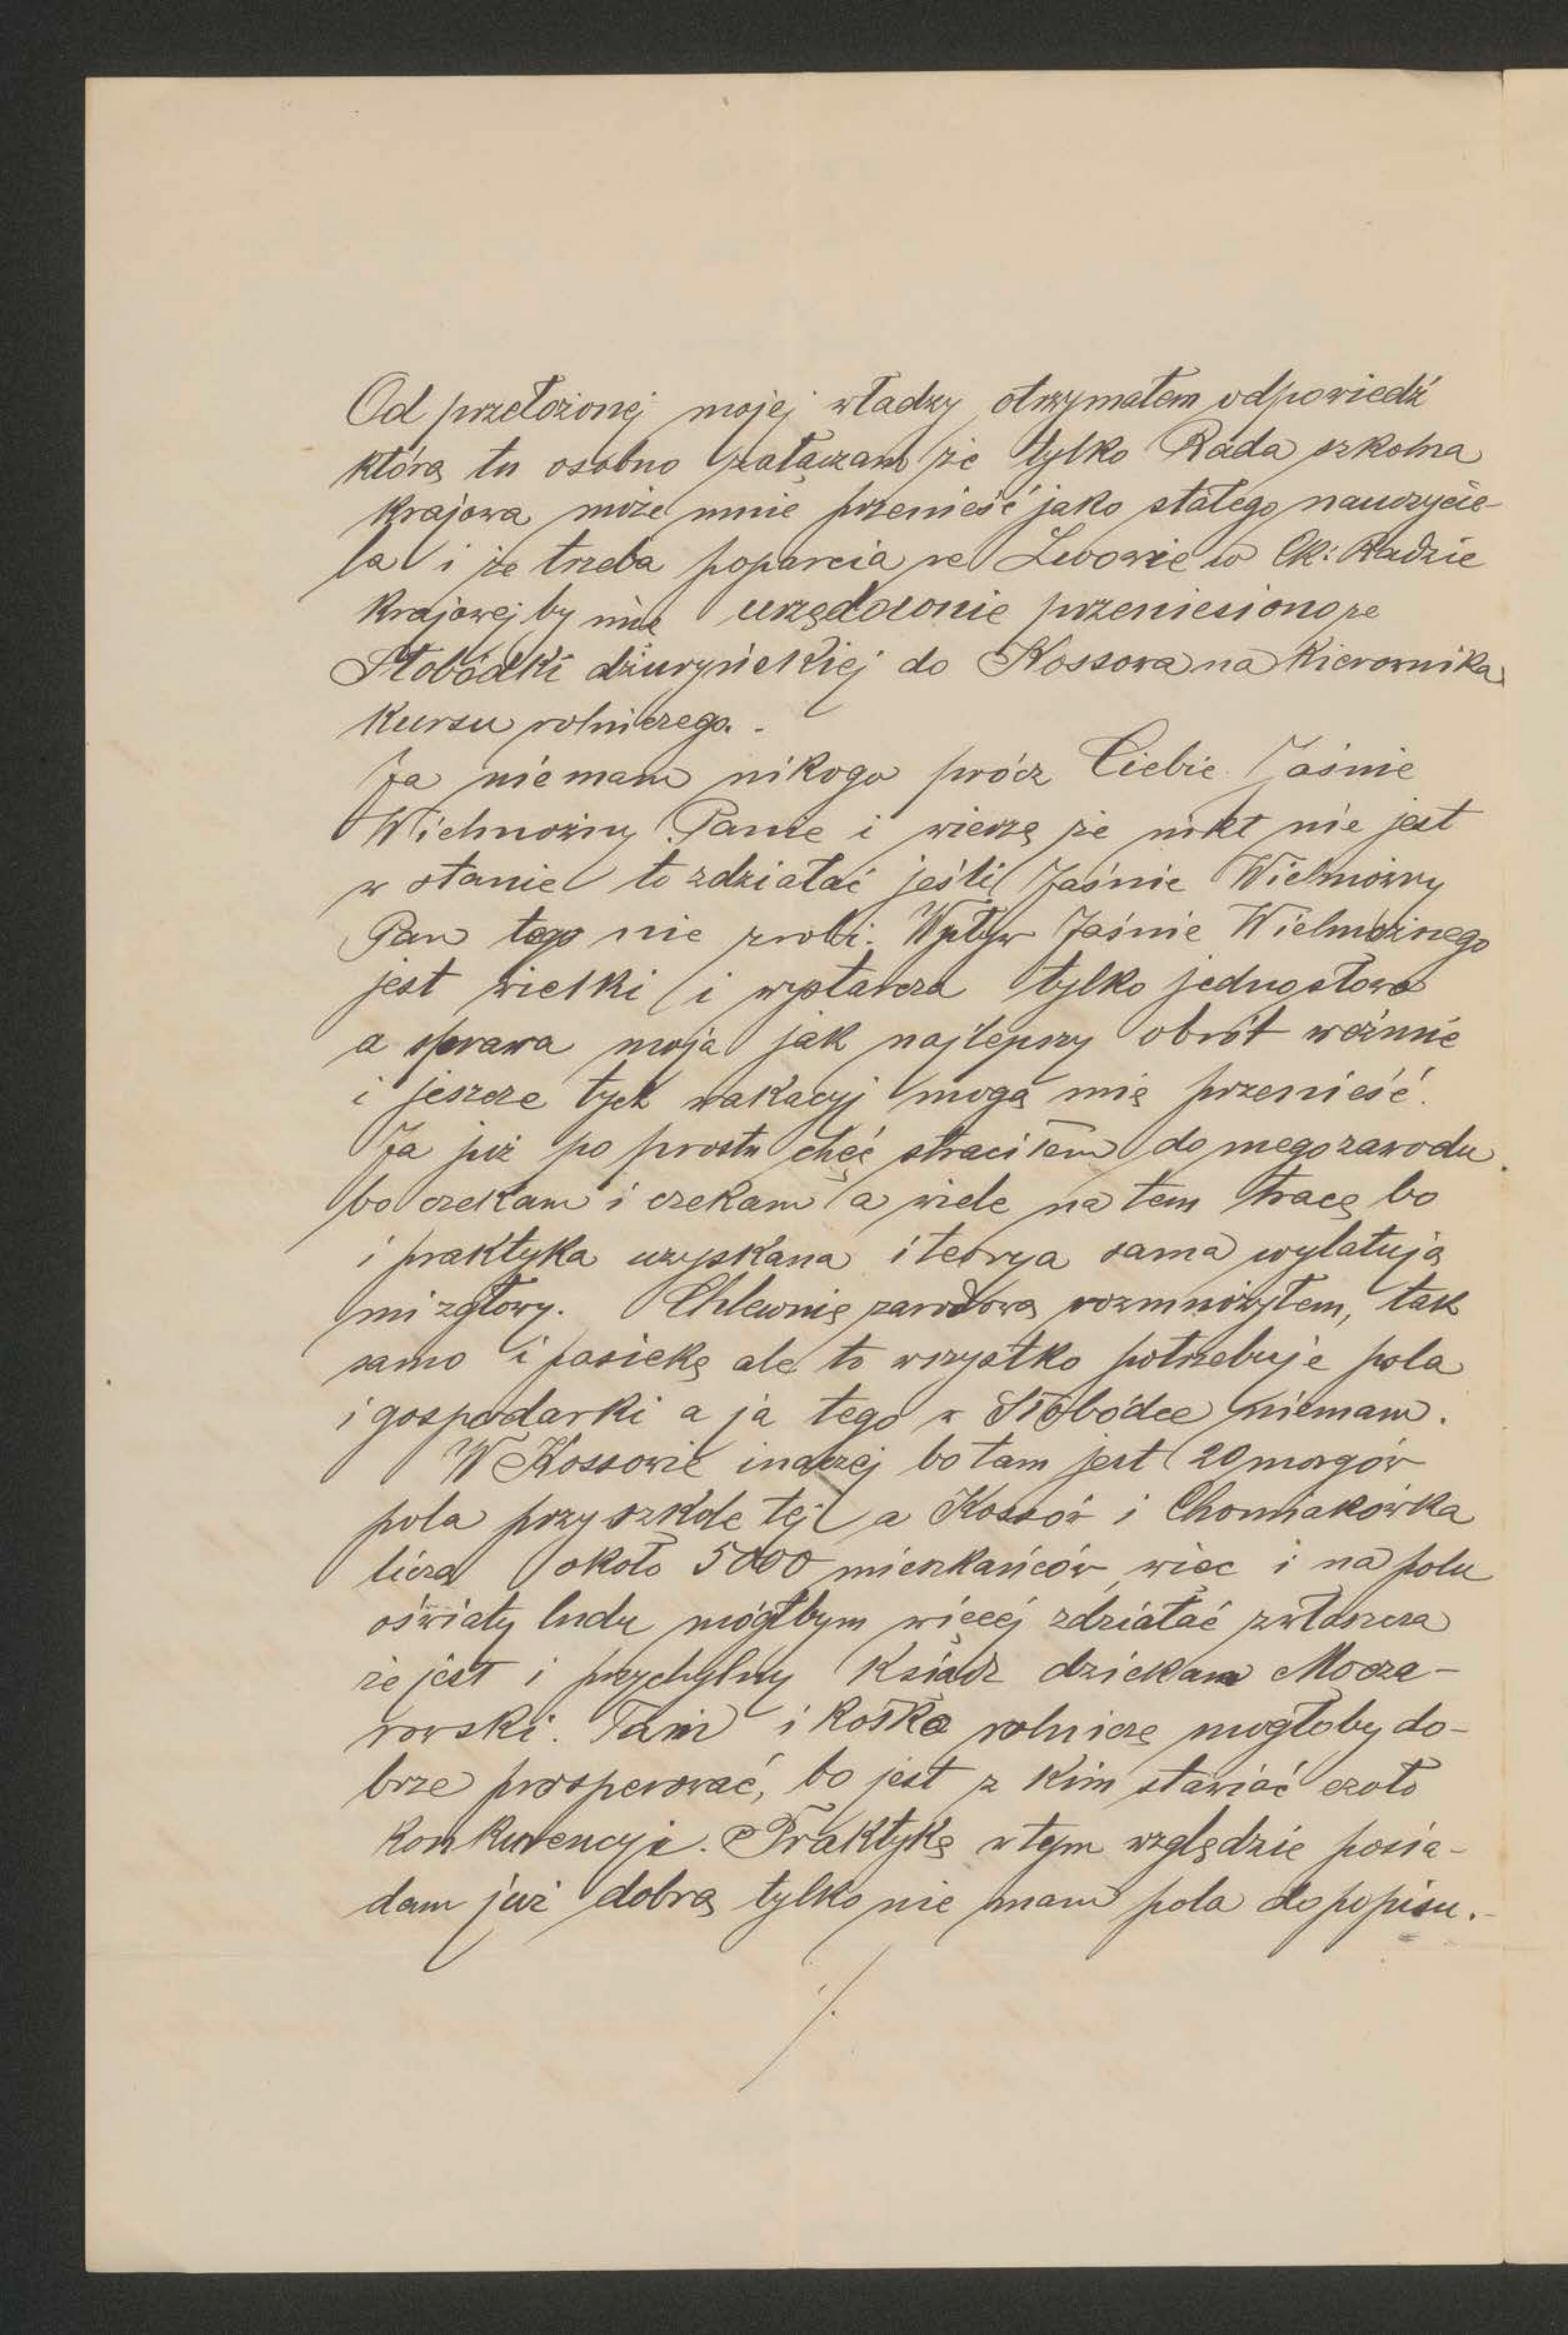 Od przełożonej mojej władzy otrzymałem odpowiedź
którą tu osobno załączam że tylko Rada szkolna
krajowa może mnie przenieść jako stałego nauczycie-
la i że trzeba poparcia we Lwowie w Ck: Radzie
krajowej by mię urzędownie przeniesiono ze
Słobódki dżuryńskiej do Kossowa na kierownika
kursu rolniczego. -
Ja niemam nikogo prócz Ciebie Jaśnie
Wielmożny Panie i wierzę że nikt nie jest
w stanie to zdziałać jeśli Jaśnie Wielmożny
Pan tego nie zrobi. Wpływ Jaśnie Wielmożnego
jest wielki i wystarcza tylko jedno słowo
a sprawa moja jak najlepszy obrót weźmie
i jeszcze tych wakacyj mogą mię przenieść.
Ja już po prostu chęć straciłem do mego zawodu
bo czekam i czekam a wiele na tem tracę bo
i praktyka uzyskana i teorya sama wylatują
mi z głowy. Chlewnię zarodową rozmnożyłem, tak
samo i pasiekę ale to wszystko potrzebuje pola
i gospodarki a ja tego w Słobódce niemam.
W Kossowie inaczej bo tam jest 20 morgów
pola przy szkole tej a Kossów i Chomiakówka
liczą około 5000 mieszkańców, więc i na polu
oświaty ludu mógłbym więcej zdziałać zwłaszcza
że jest i przychylny Ksiądz dziekan Mocza-
rowski. Tam i kółko rolnicze mogłoby do-
brze prosperować, bo jest z kim stawiać czoło
konkurencyi. Praktykę w tym względzie posia-
dam już dobrą tylko nie mam pola do popisu. -
./.